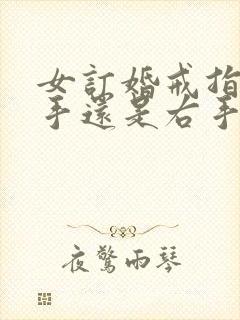 女訂婚戒指
手還是右手
夜驚雨琴